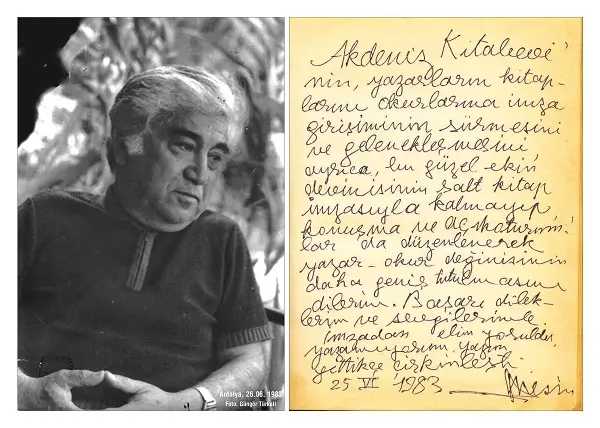 Antalya, 26.06.1983
Foto: Güngör Türkeli
Akdeniz Kitabevi'
nin, yazarların kitap-
larını okurlarına imza
girişiminin sürmesini
ve gelenekleşmesini,
ayrıca, bu güzel ekin
devinisinin salt kitap
imzasıyla kalmayıp,
konuşma ve açıkoturum-
lar da düzenlenerek
yazar-okur değinisinin
daha geniş tutulmasını
dilerim. Başarı dilek-
lerim ve sevgilerimle
imzadan elim yoruldu,
yazamıyorum, yazım
gittikçe çirkinleşti.
25 VI 1983